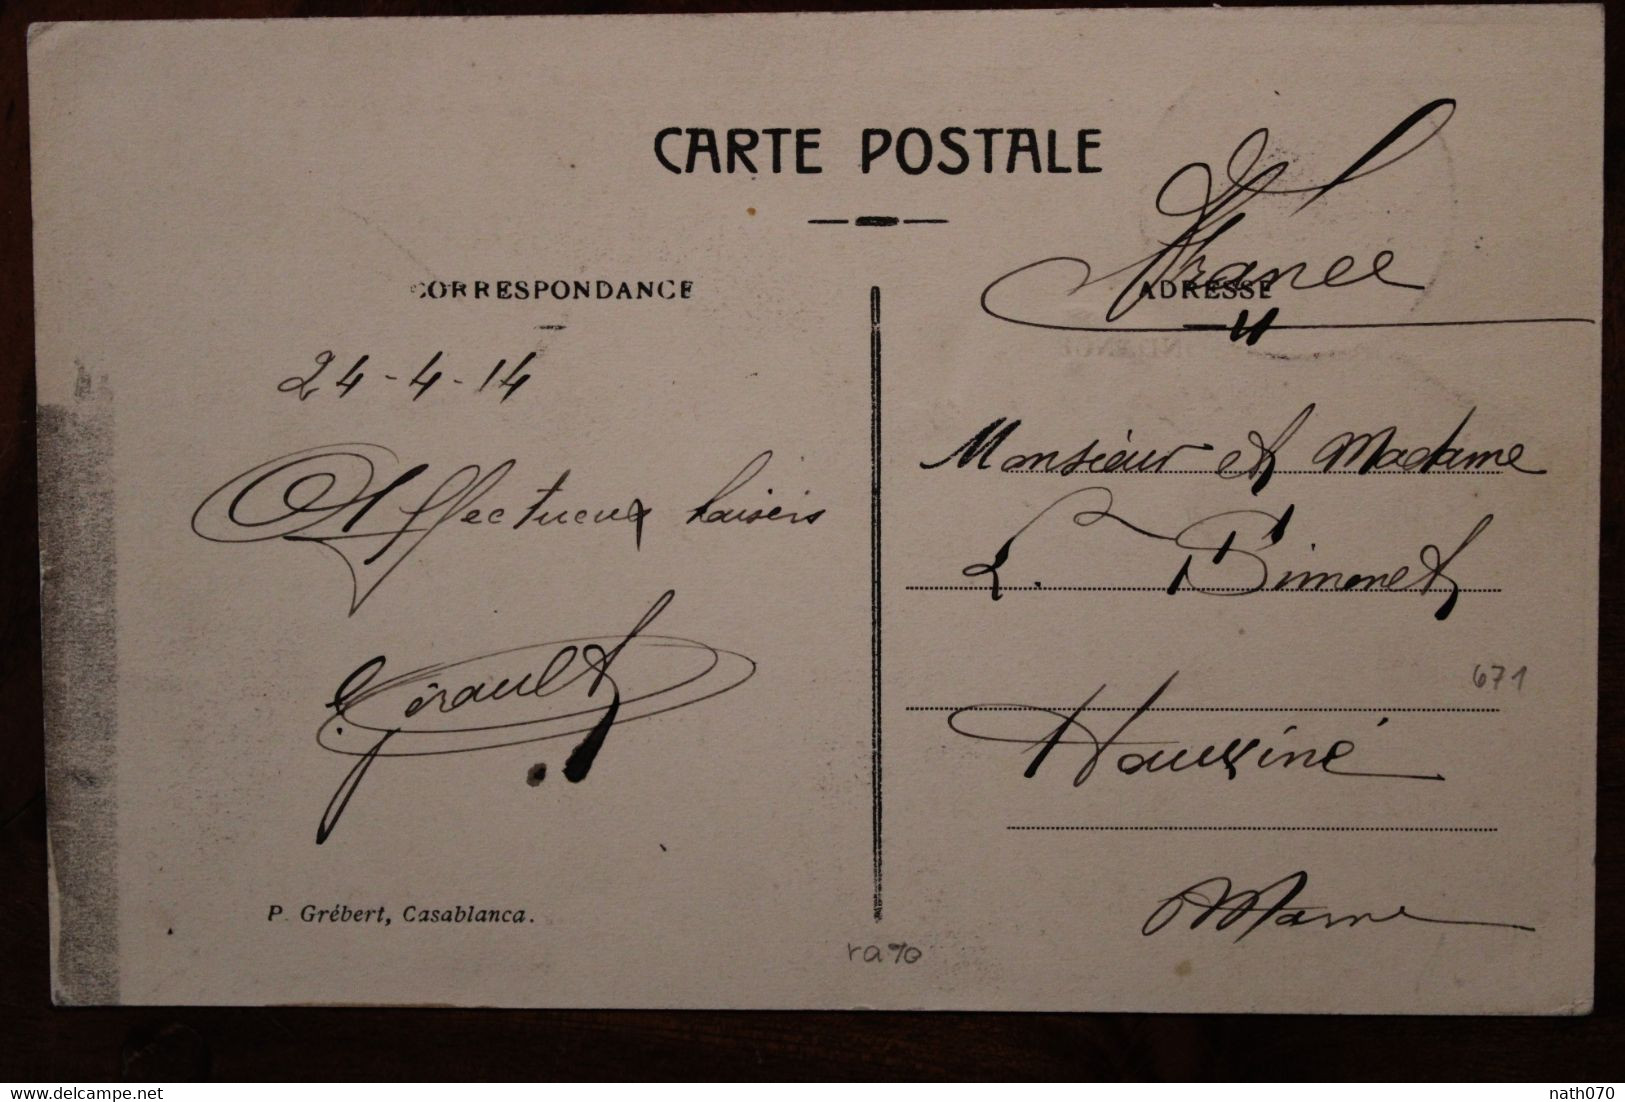 CARTE POSTALE
CORRESPONDANCE
24-4-14
Affectueux baisers
Girault
P. Grébert, Casablanca.
ra70
France
ADRESSE
Monsieur et Madame
L. Simonet
671
Hauxiné
Marne
delcampe.net
nath070